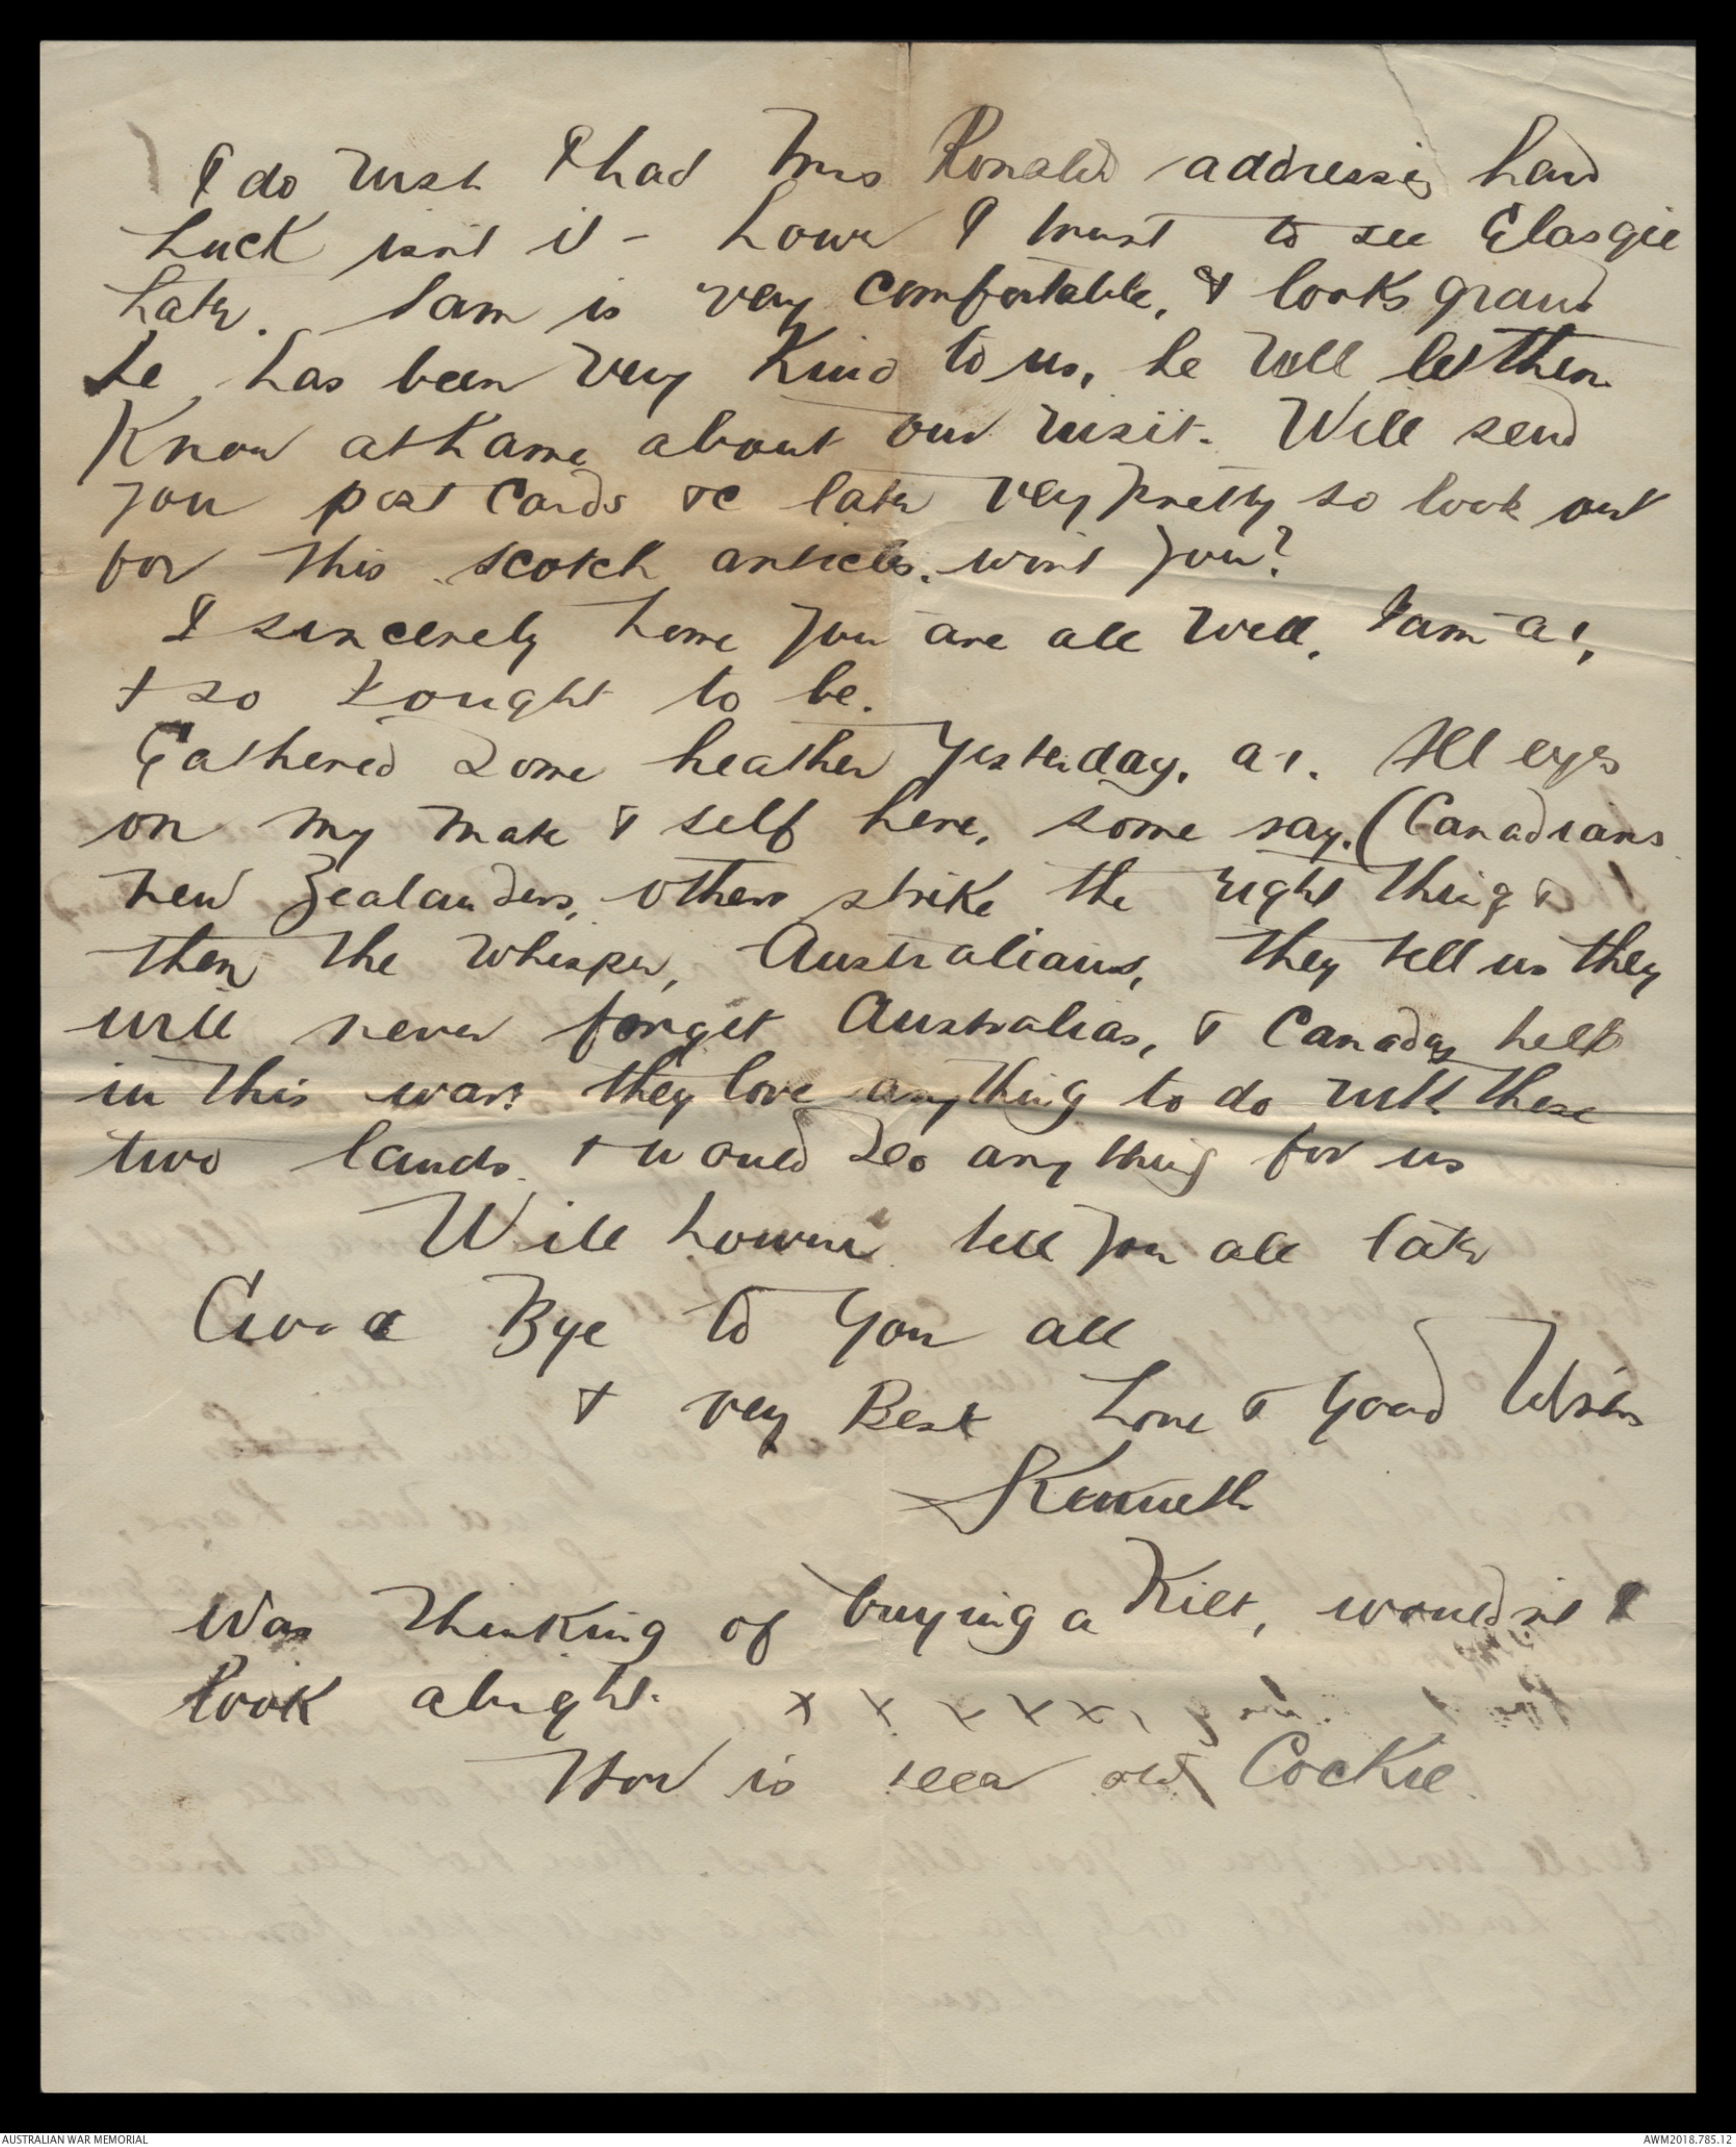 I do wish I had Mrs Ronald addresses, hard
luck isnt it - howr I trust to see Glasgie
later. Sam is very comfortable, & looks grand
he has been very kind to us, he will let them
know at home about our visit. Will send
you post cards &c later very pretty so look out
for this scotch articles, wont you?
I sincerely hope you are all well, I am a1,
& so I ought to be.
Gathered some heather yesterday, a1. All eyes
on my mate & self here, some say, (Canadians
New Zealanders, others strike the right thing &
then the whisper, Australians, they tell us they
will never forget Australias, & Canadas help
in this war: they love anything to do with these
two lands, & would do anything for us
Will tell you all later
Good Bye to You all
& very Best Love & Good Wishes
Kenneth
Was thinking of buying a Kilt, wouldnt I
look alright. x x x x x
How is dear old Cockie.
AUSTRALIAN WAR MEMORIAL
AWM2018.785.12